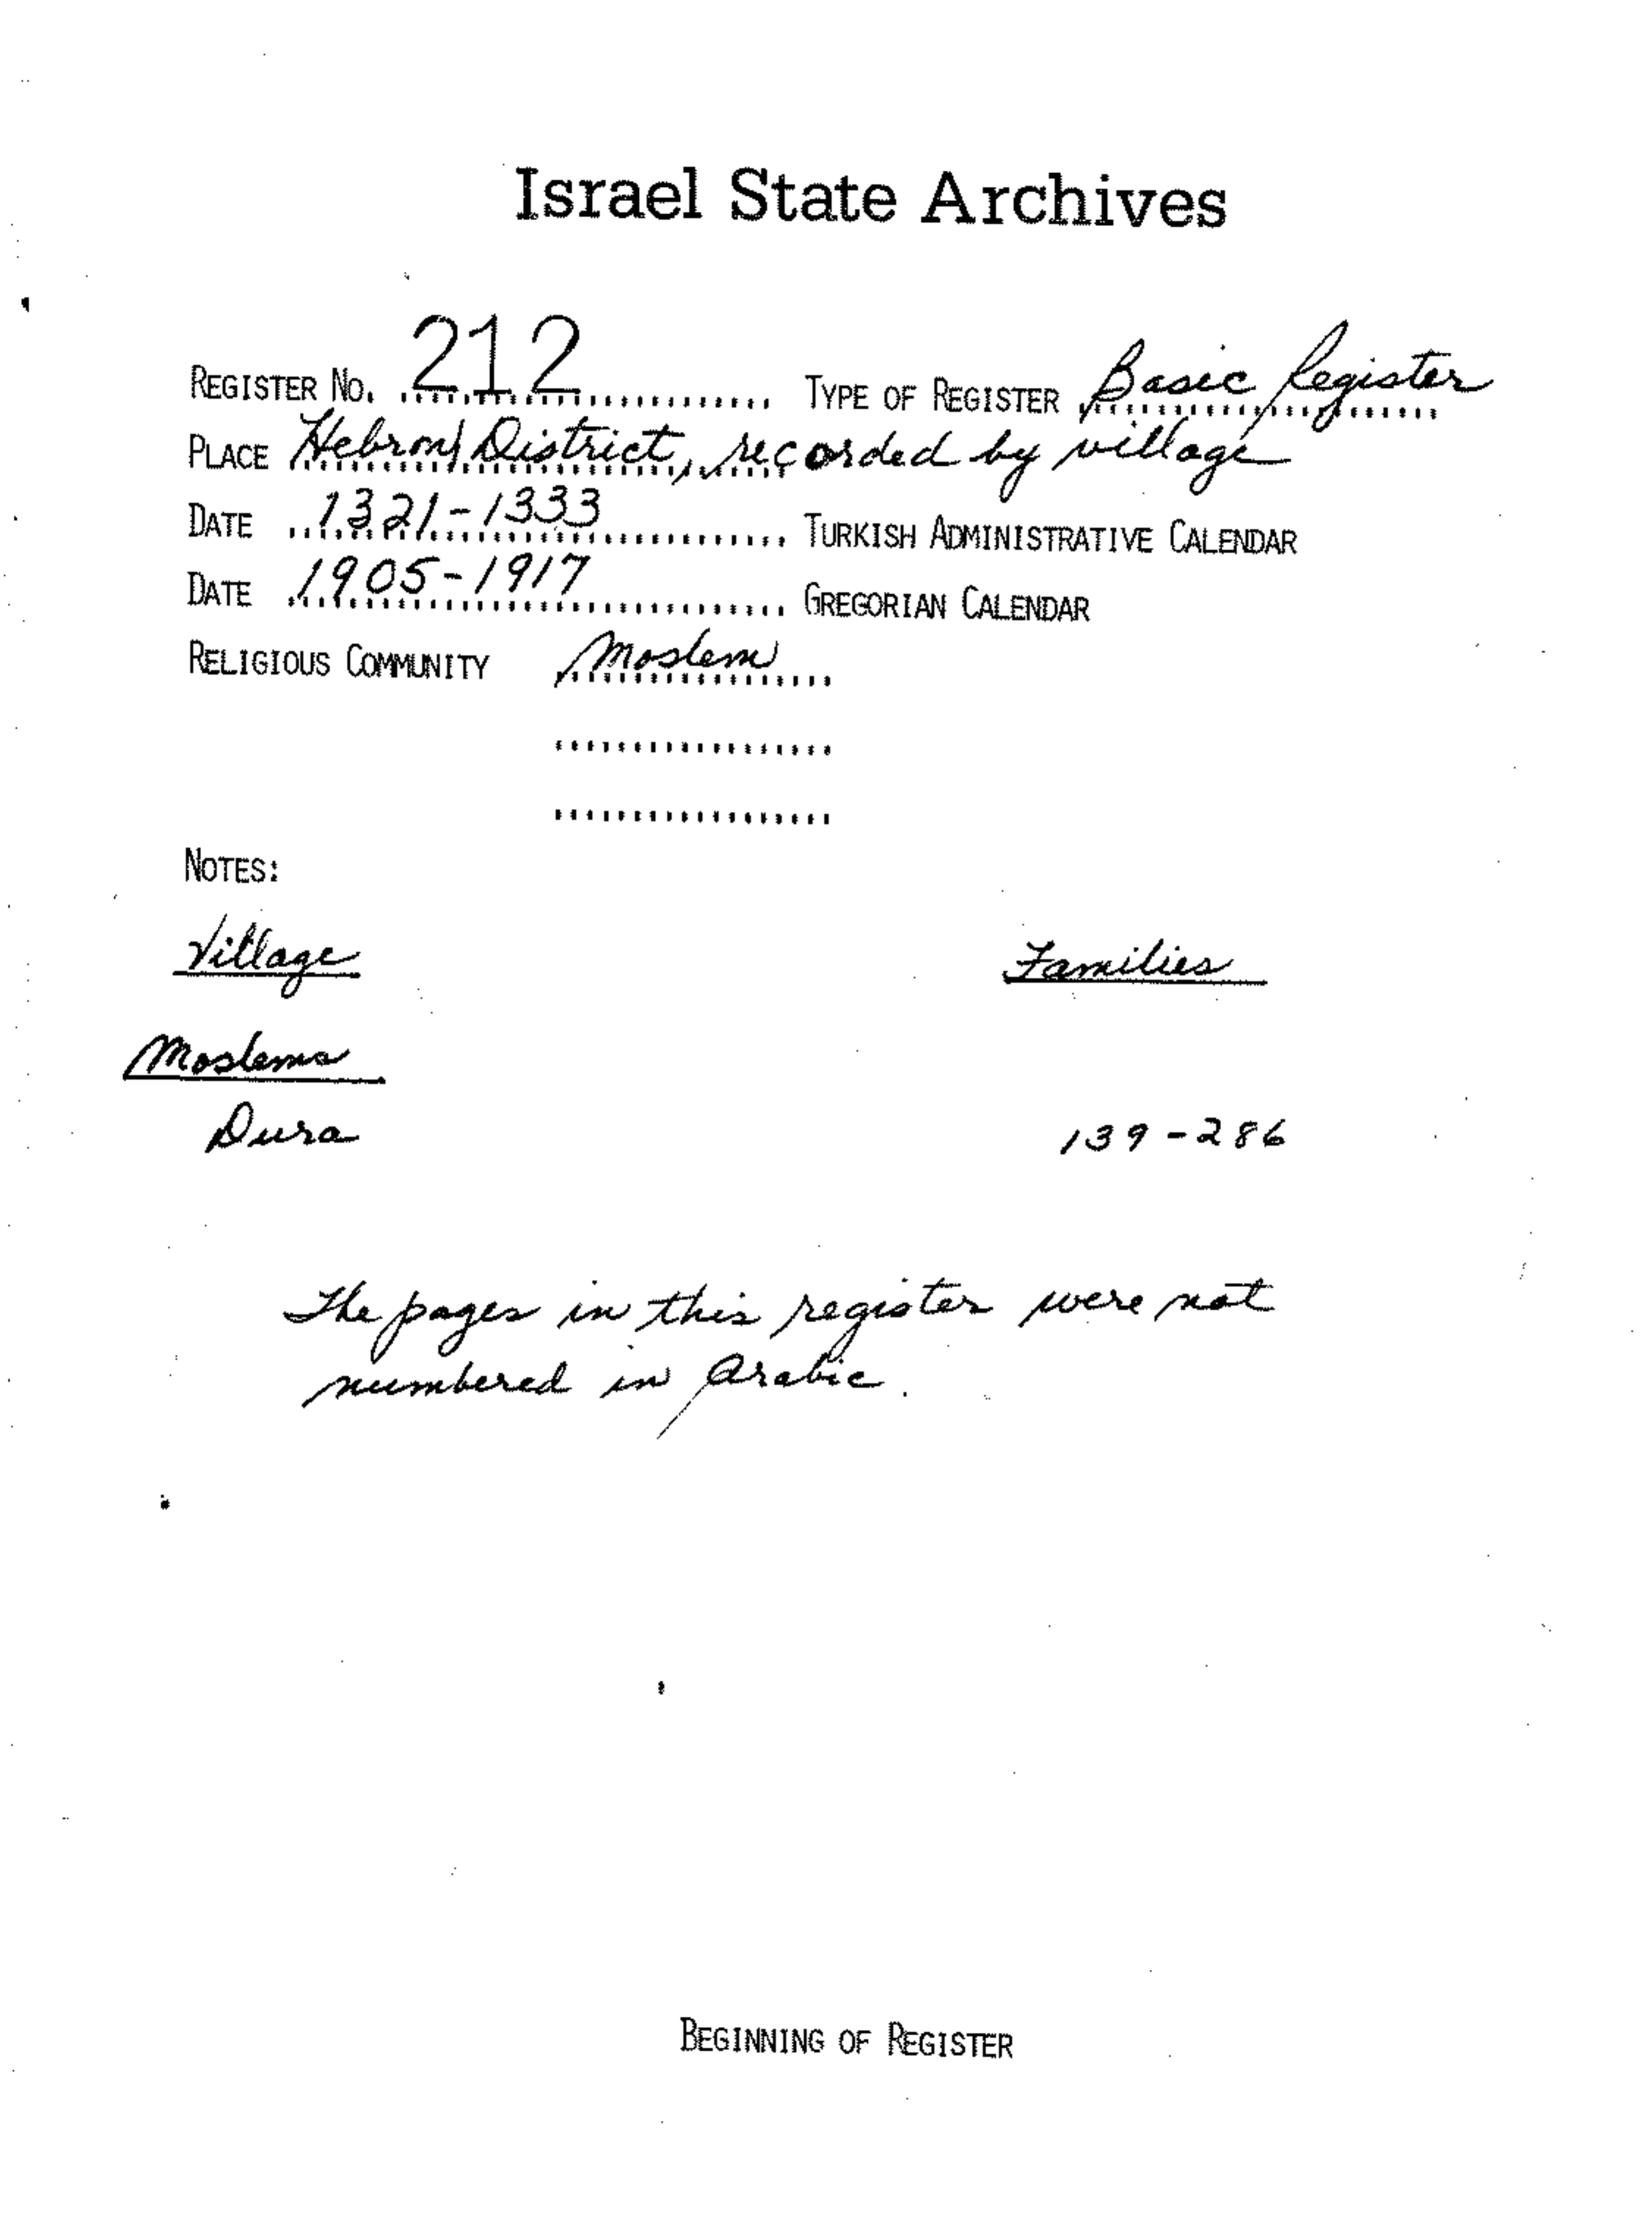 Israel State Archives
REGISTER NO. 212 TYPE OF REGISTER Basic Register
PLACE Hebron District, recorded by village
DATE 1321-1333 TURKISH ADMINISTRATIVE CALENDAR
DATE 1905-1917 GREGORIAN CALENDAR
RELIGIOUS COMMUNITY Moslem
NOTES:
Village Families
Moslems
Dura 139-286
The pages in this register were not
numbered in Arabic.
BEGINNING OF REGISTER